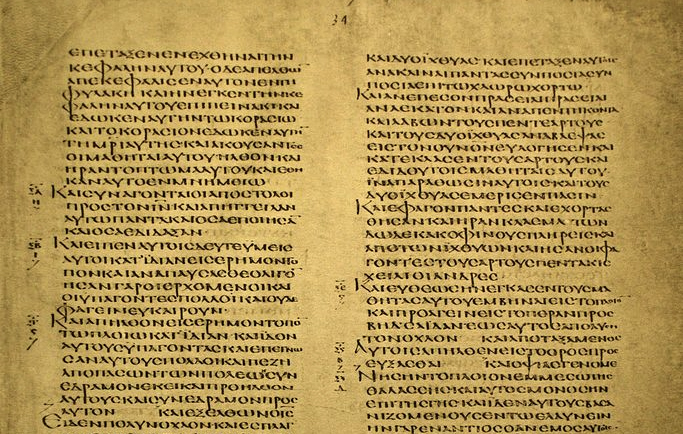 34
ΕΠΕΤΑΞΕΝΕΝΕΧΘΗΝΑΙΤΗΝ
ΚΕΦΑΛΗΝΑΥΤΟΥ·ΟΔΕΑΠΕΛΘΩ̅
ΑΠΕΚΕΦΑΛΙϹΕΝΑΥΤΟΝΕΝΤΗ
ΦΥΛΑΚΗ ΚΑΙΗΝΕΓΚΕΝΤΗΝΚΕ
ΦΑΛΗΝΑΥΤΟΥΕΠΙΠΙΝΑΚΙΚΑΙ
ΕΔΩΚΕΝΑΥΤΗΝΤΩΚΟΡΑϹΙΩ
ΚΑΙΤΟΚΟΡΑϹΙΟΝΕΔΩΚΕΝΑΥΤΗ̅
ΤΗΜΡΙΑΥΤΗϹΚΑΙΑΚΟΥϹΑΝΤΕϹ
ΟΙΜΑΘΗΤΑΙΑΥΤΟΥΗΛΘΟΝΚΑΙ
ΗΡΑΝΤΟΠΤΩΜΑΑΥΤΟΥΚΑΙΕΘΗ
ΚΑΝΑΥΤΟΕΝΜΝΗΜΕΙΩ
ΚΑΙϹΥΝΑΓΟΝΤΑΙΟΙΑΠΟϹΤΟΛΟΙ
ΠΡΟϹΤΟΝΙΝΚΑΙΑΠΗΓΓΕΙΛΑΝ
ΑΥΤΩΠΑΝΤΑΚΑΙΟϹΑΕΠΟΙΗϹΑ̅
ΚΑΙΟϹΑΕΔΙΔΑΞΑΝ
ΚΑΙΕΙΠΕΝΑΥΤΟΙϹΔΕΥΤΕΥΜΕΙϹ
ΑΥΤΟΙΚΑΤΪΔΙΑΝΕΙϹΕΡΗΜΟΝΤΟ
ΠΟΝΚΑΙΑΝΑΠΑΥϹΑϹΘΕΟΛΙΓΟ̅
ΗϹΑΝΓΑΡΟΙΕΡΧΟΜΕΝΟΙΚΑΙ
ΟΙΥΠΑΓΟΝΤΕϹΠΟΛΛΟΙΚΑΙΟΥΔΕ
ΦΑΓΕΙΝΕΥΚΑΙΡΟΥΝ·
ΚΑΙΑΠΗΛΘΟΝΕΙϹΕΡΗΜΟΝΤΟΠΟ̅
ΤΩΠΛΟΙΩΚΑΤΪΔΙΑΝ ΚΑΙΪΔΟΝ
ΑΥΤΟΥϹΫΠΑΓΟΝΤΑϹΚΑΙΕΠΕΓΝΩ
ϹΑΝΑΥΤΟΥϹΠΟΛΛΟΙΚΑΙΠΕΖΗ
ΑΠΟΠΑϹΩΝΤΩΝΠΟΛΕΩΝϹΥΝ
ΕΔΡΑΜΟΝΕΚΕΙΚΑΙΠΡΟΗΛΘΟΝ
ΑΥΤΟΥϹΚΑΙϹΥΝΕΔΡΑΜΟΝΠΡΟϹ
ΑΥΤΟΝ ΚΑΙΕΞΕΛΘΩΝΟΙϹ
ΕΙΔΕΝΠΟΛΥΝΟΧΛΟΝΚΑΙΕϹΠΛΑΓ
ΚΑΙΔΥΟΪΧΘΥΑϹ ΚΑΙΕΠΕΤΑΞΕΝΑΥΤΟΙϹ
ΑΝΑΚΛΙΝΑΙΠΑΝΤΑϹϹΥΜΠΟϹΙΑϹΥΜ
ΠΟϹΙΑΕΠΙΤΩΧΛΩΡΩΧΟΡΤΩ
ΚΑΙΑΝΕΠΕϹΟΝΠΡΑϹΙΑΙΠΡΑϹΙΑΙ
ΑΝΑΕΚΑΤΟΝΚΑΙΑΝΑΠΕΝΤΗΚΟΝΤΑ
ΚΑΙΛΑΒΩΝΤΟΥϹΠΕΝΤΕΑΡΤΟΥϹ
ΚΑΙΤΟΥϹΔΥΟΪΧΘΥΑϹΑΝΑΒΛΕΨΑϹ
ΕΙϹΤΟΝΟΥΝΟΝΕΥΛΟΓΗϹΕΝΚΑΙ
ΚΑΤΕΚΛΑϹΕΝΤΟΥϹΑΡΤΟΥϹΚΑΙ
ΕΔΙΔΟΥΤΟΙϹΜΑΘΗΤΑΙϹΑΥΤΟΥ·
ΪΝΑΠΑΡΑΘΩϹΙΝΑΥΤΟΙϹΚΑΙΤΟΥϹ
ΔΥΟΪΧΘΥΑϹΕΜΕΡΙϹΕΝΠΑϹΙΝ
ΚΑΙΕΦΑΓΟΝΠΑΝΤΕϹΚΑΙΕΧΟΡΤΑϹ
ΘΗϹΑΝΚΑΙΗΡΑΝΚΛΑϹΜΑΤΩΝ
ΔΩΔΕΚΑΚΟΦΙΝΟΥϹΠΛΗΡΕΙϹΚΑΙ
ΑΠΟΤΩΝΪΧΘΥΩΝΚΑΙΗϹΑΝΟΙΦΑ
ΓΟΝΤΕϹΤΟΥϹΑΡΤΟΥϹΠΕΝΤΑΚΙϹ
ΧΕΙΛΙΟΙΑΝΔΡΕϹ
ΚΑΙΕΥΘΕΩϹΗΝΕΓΚΑϹΕΝΤΟΥϹΜΑ
ΘΗΤΑϹΑΥΤΟΥΕΜΒΗΝΑΙΕΙϹΤΟΠΛΟΙΟΝ
ΚΑΙΠΡΟΑΓΕΙΝΕΙϹΤΟΠΕΡΑΝΠΡΟϹ
ΒΗΔϹΑΪΔΑΝΕΩϹΑΥΤΟϹΑΠΟΛΥϹΗ
ΤΟΝΟΧΛΟΝ ΚΑΙΑΠΟΤΑΞΑΜΕΝΟϹ
ΑΥΤΟΙϹΑΠΗΛΘΕΝΕΙϹΤΟΟΡΟϹΠΡΟϹ
ΕΥΞΑϹΘΑΙ ΚΑΙΟΨΙΑϹΓΕΝΟΜΕ
ΝΗϹΗΝΤΟΠΛΟΙΟΝΕΜΜΕϹΩΤΗϹ
ΘΑΛΑϹϹΗϹΚΑΙΑΥΤΟϹΜΟΝΟϹ
ΕΠΙΤΗϹΓΗϹΚΑΙΕΙΔΕΝΑΥΤΟΥϹΒΑϹΑ
ΝΙΖΟΜΕΝΟΥϹΕΝΤΩΕΛΑΥΝΕΙΝ
ΗΝΓΑΡΕΝΑΝΤΙΟϹΟΑΝΕΜΟϹΑΥΤΟΙϹ